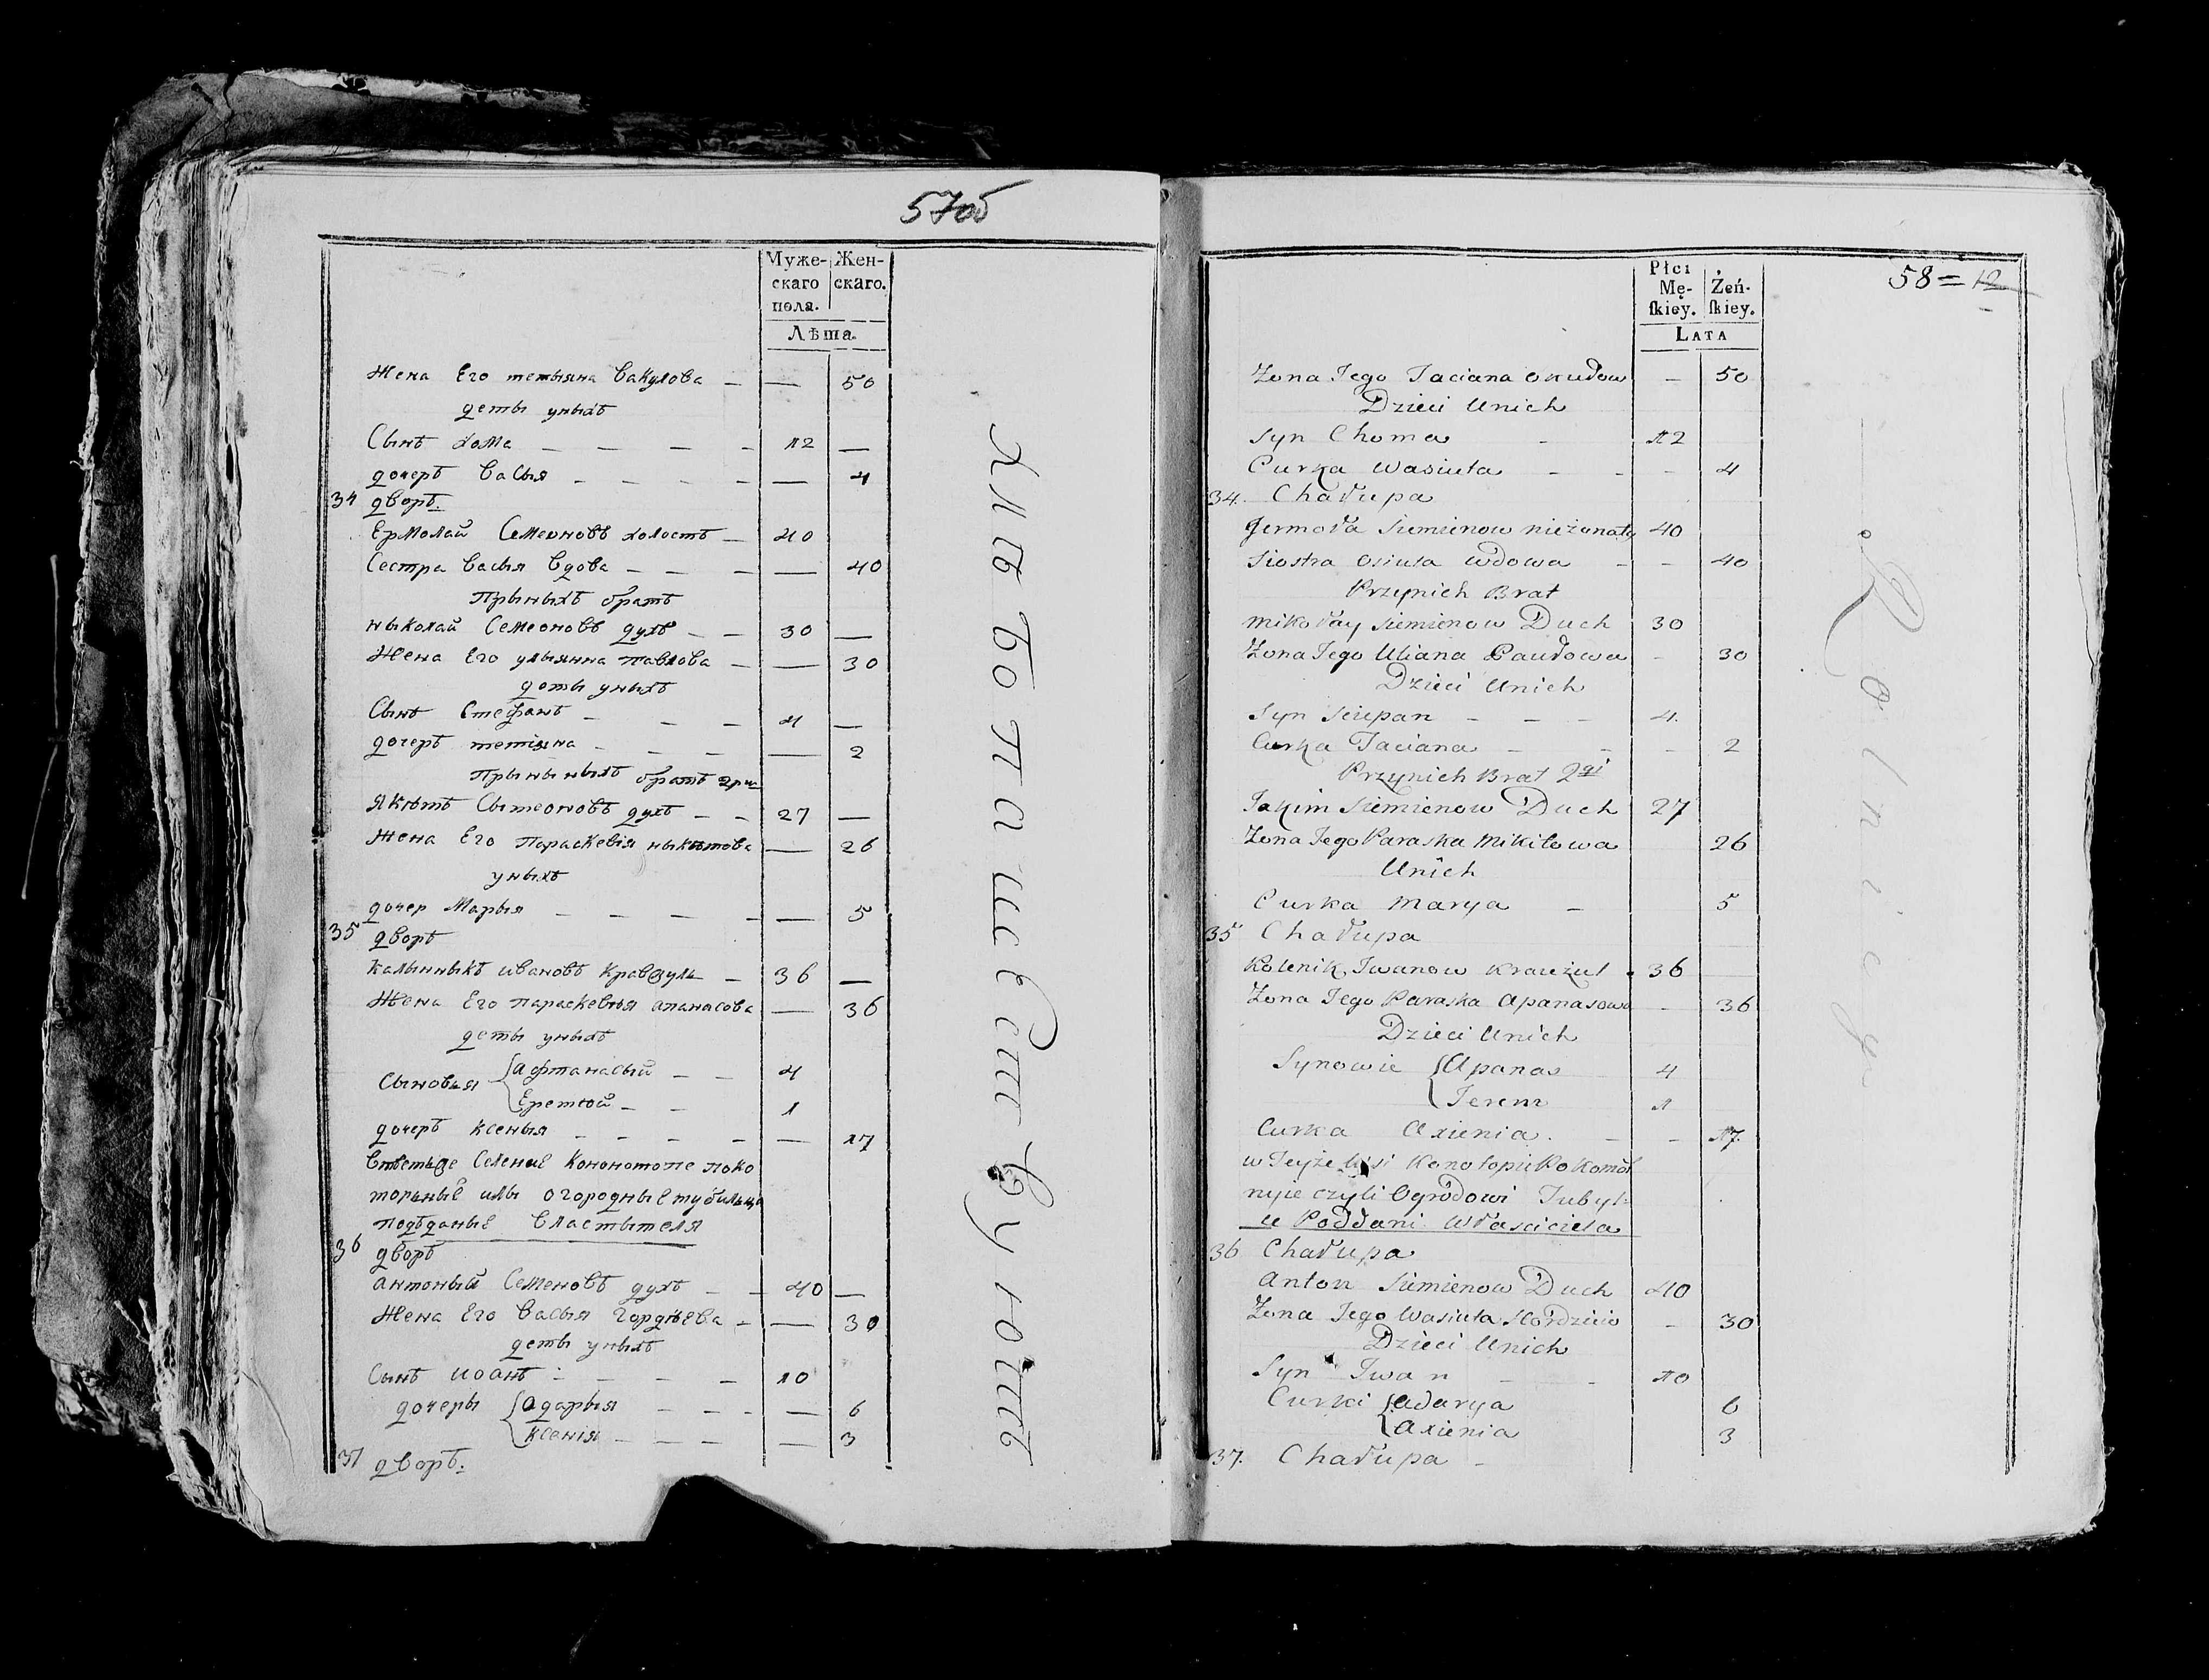 57об
Муже-
скаго
пола.
Жен-
скаго.
Лѣта.
Жена Его тетьяна вакулова — — 50
деты уныхъ
Сынъ хома — — — — 12 —
дочеръ васья — — — — — 4
34 дворъ.
Ермолай Семеоновъ холостъ — 40
Сестра васья вдова — — — — 40
Прыныхъ братъ
ныколай Семеоновъ духъ — — 30 —
Жена Его ульянна павлова — — 30
деты уныхъ
Сынъ Стефанъ — — — 4 —
дочеръ тетіяна — — — — 2
Прыныхъ братъ
Якимъ Сымеоновъ духъ — — 27 —
Жена Его Параскевія ныкитова — 26
уныхъ
дочер Марья — — — — — 5
35 дворъ
калынныкъ ивановъ — 36 —
Жена Его параскевья апанасова — 36
деты уныхъ
Сыновья афтанасый — — 4
Еремѣй — — 1
дочеръ ксенья — — — — — 17
Селеные Конономопе поко
морные илы огородные тубыльца
подъданые властытеля
36 дворъ
антоный Семеновъ духъ — — 40 —
Жена Его васья гордѣева — — 30
деты уныхъ
Сынъ иоанъ — — — — 10
дочеры адарья — — — — 6
ксенія — — — — 3
37 дворъ.
хлѣбопашествуютъ
58 = 12
Płci
Mę-
skiey.
Żeń-
skiey.
LATA
Żona Jego Taciana Okułow — 50
Dzieci Unich
Syn Choma — 12
Curka Wasiuta — — — 4
34. Chałupa
Jermoła Siemienow nieżonaty 40
Siostra Osiuta wdowa — — 40
Przynich Brat
Mikołay Siemienow Duch 30
Żona Jego Uliana Pawłowa — 30
Dzieci Unich
Syn Sciepan — — — 4
Curka Taciana — — — 2
Przynich Brat 2gi
Jakim Siemienow Duch 27
Żona Jego Paraska Mikitowa 26
Unich
Curka Marya — 5
35 Chałupa
Kolenik Iwanow Krawżul 36
Żona Jego Paraska Apanasowa — 36
Dzieci Unich
Synowie Apanas 4
Jerema 1
Curka Axienia. — — 17
w Teyże Wsi Konotopie Kokomor
nyie czyli Ogrodowi Tubyl-
ce Poddani Właściciela
36 Chałupa
Anton Siemienow Duch 40
Żona Jego Wasiuta Hordziejo — 30
Dzieci Unich
Syn Iwan — — 10
Curki Adarya 6
Axienia 3
37. Chałupa —
Rolnicy